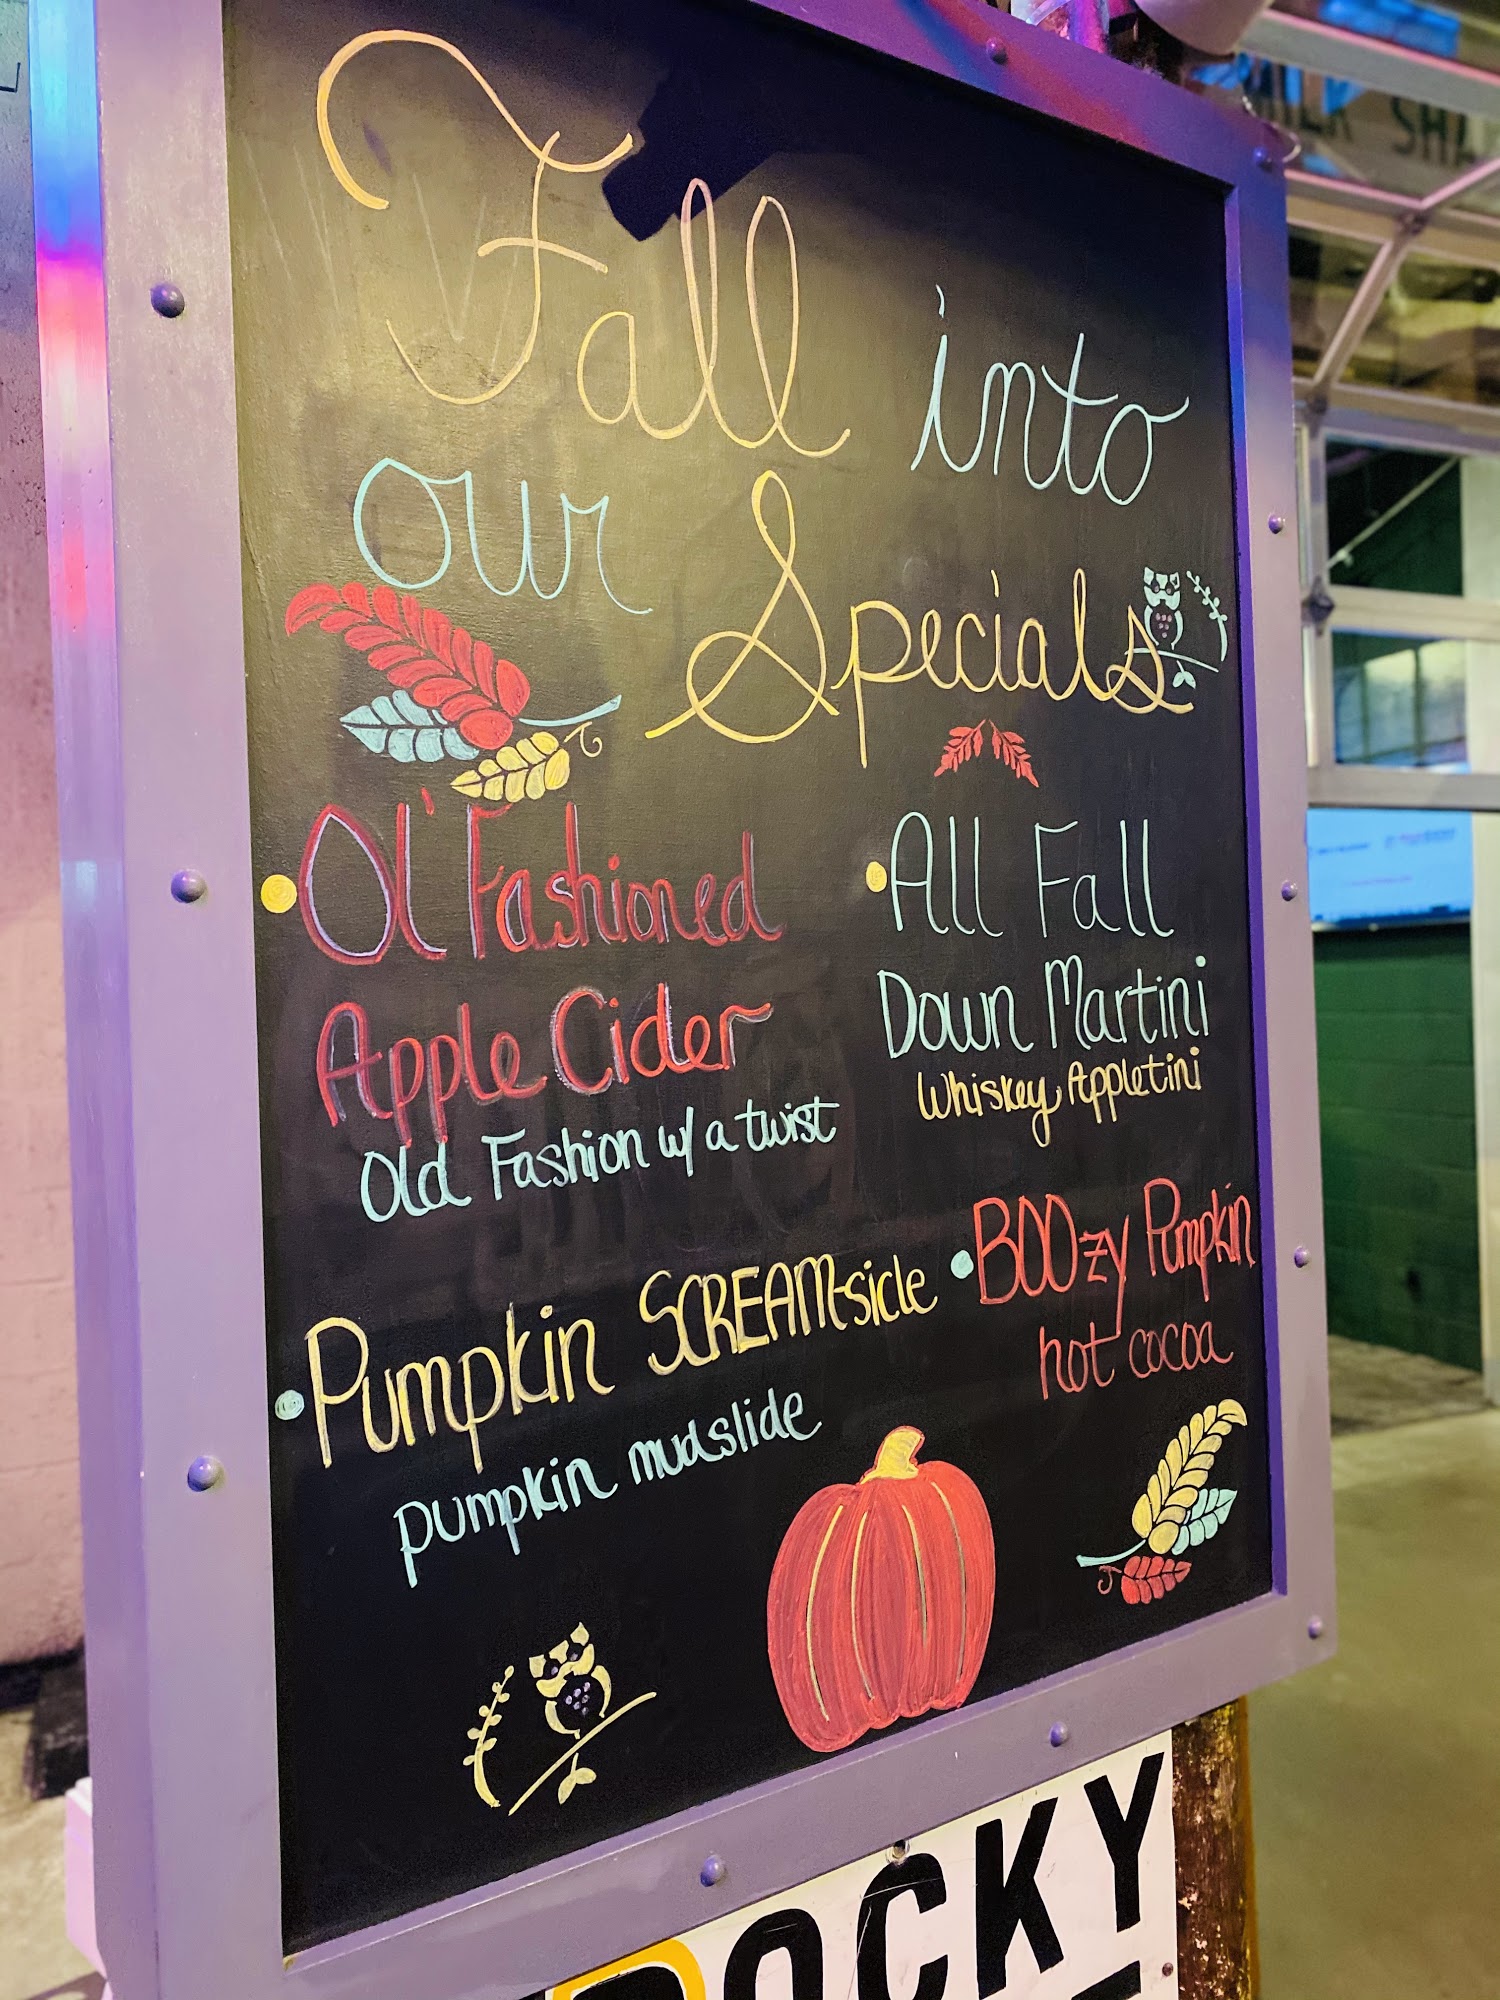 MILK SHA
Fall into
our Specials
Ol' Fashioned
Apple Cider
Old Fashion w/ a twist
All Fall
Down Martini
Whiskey Appletini
Pumpkin SCREAM-sicle
pumpkin mudslide
BOOzy Pumpkin
hot cocoa
ROCKY